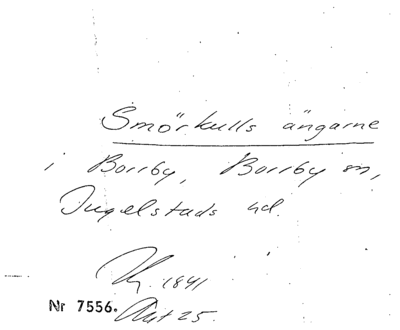 Smörkulls ängarne
i Borrby, Borrby sn,
Ingelstads hd.
1841
Nr 7556. Akt 25.